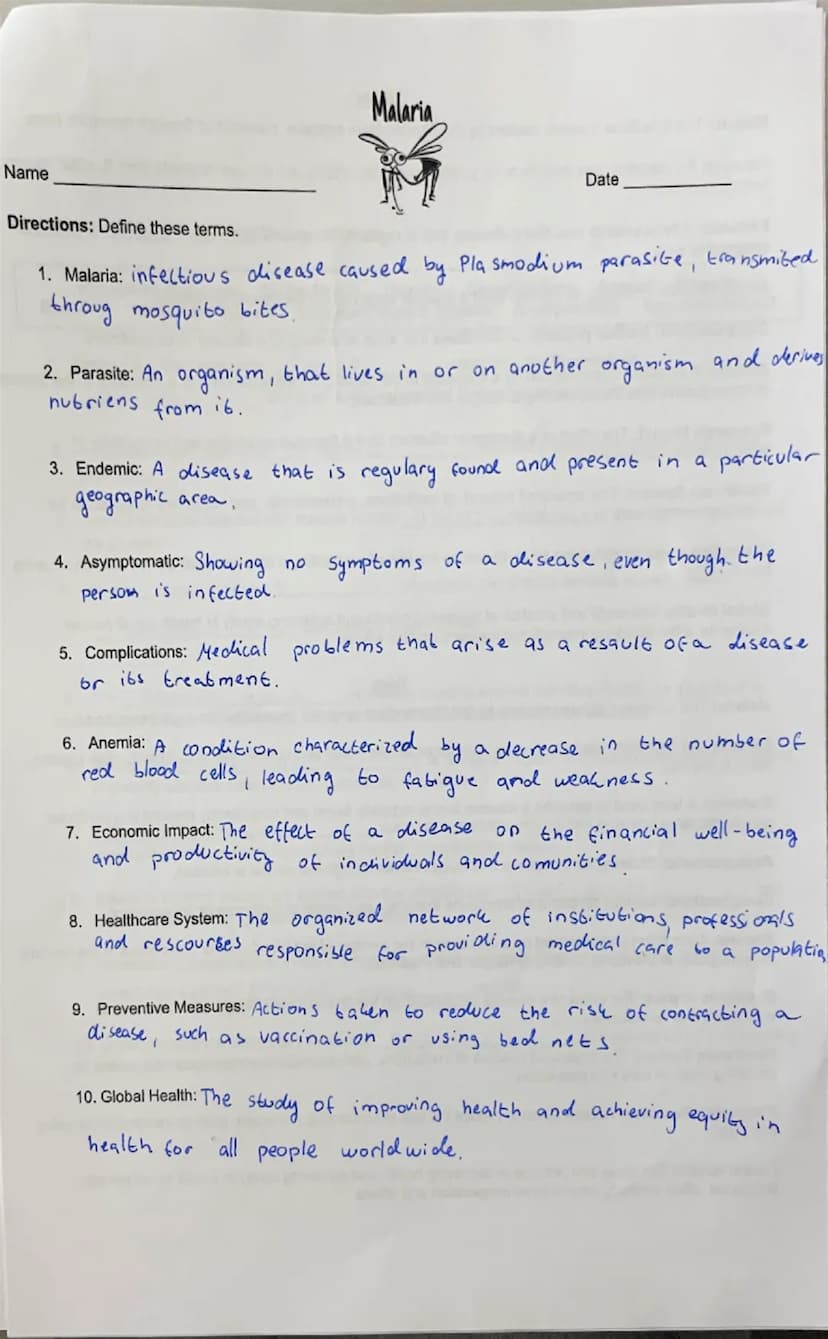 Malaria
Name
Date
Directions: Define these terms.
1. Malaria: infectious disease caused by Plasmodium parasite, transmited
throug mosquito bites.
2. Parasite: An organism, that lives in or on another organism and derives
nutriens from it.
3. Endemic: A disease that is regulary found and present in a particular
geographic area.
4. Asymptomatic: Showing no symptoms of a disease, even though the
person is infected.
5. Complications: Medical problems that arise as a resault of a disease
or its treatment.
6. Anemia: A condition characterized by a decrease in the number of
red blood cells, leading to fatigue and weakness.
7. Economic Impact: The effect of a disease on the financial well-being
and productivity of individuals and comunities.
8. Healthcare System: The organized network of institutions, professionals
and rescourses responsible for providing medical care to a population
9. Preventive Measures: Actions taken to reduce the risk of contracting a
disease, such as vaccination or using bed nets.
10. Global Health: The study of improving health and achieving equity in
health for all people worldwide.